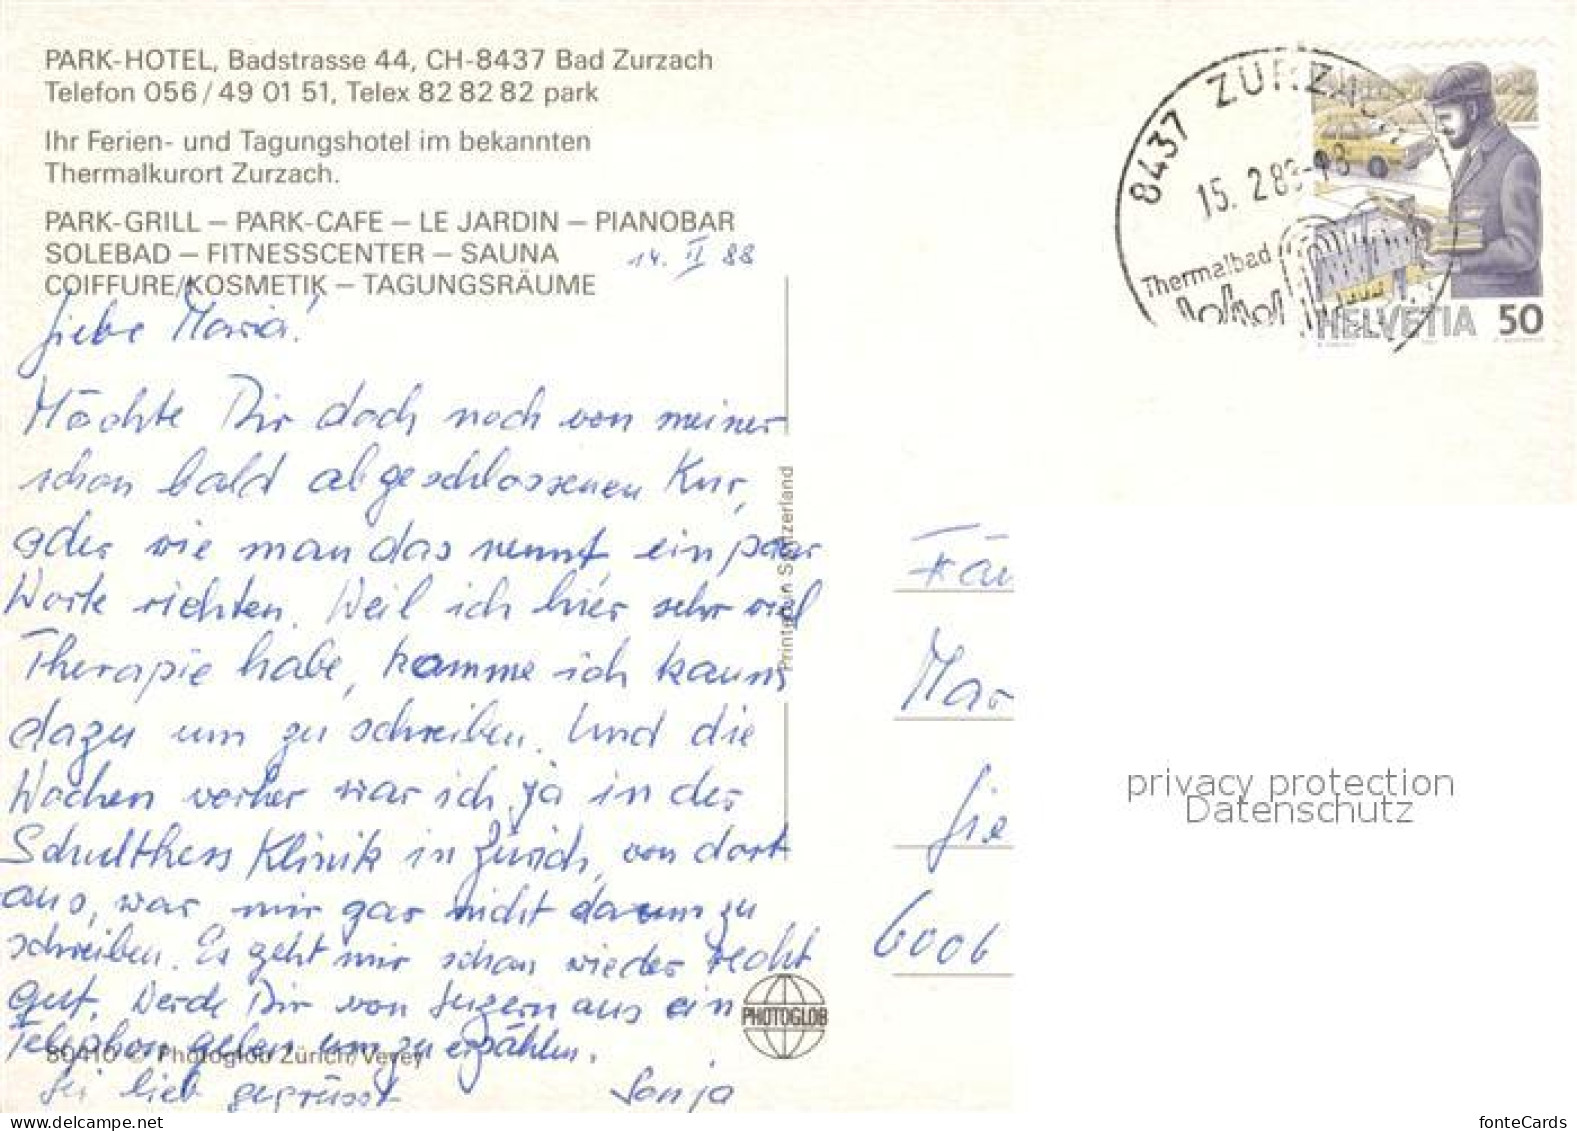 PARK-HOTEL, Badstrasse 44, CH-8437 Bad Zurzach
Telefon 056/49 01 51, Telex 82 82 82 park
Ihr Ferien- und Tagungshotel im bekannten
Thermalkurort Zurzach.
PARK-GRILL – PARK-CAFE – LE JARDIN – PIANOBAR
SOLEBAD – FITNESSCENTER – SAUNA
COIFFURE/KOSMETIK – TAGUNGSRÄUME
14. II 88
Liebe Maria!
Möchte Dir doch noch von meiner
schon bald abgeschlossenen Kur,
oder wie man das nennt, ein paar
Worte richten. Weil ich hier sehr viel
Therapie habe, komme ich kaum
dazu um zu schreiben. Und die
Wochen vorher war ich ja in der
Schulthess Klinik in Zürich, von dort
aus, war mir gar nicht darum zu
schreiben. Es geht mir schon wieder recht
gut. Werde Dir von Luzern aus ein
Telephon geben um zu erzählen.
Sei lieb gegrüsst Sonja
80410 © Photoglob Zürich/Vevey
Printed in Switzerland
PHOTOGLOB
8437 ZURZACH
15. 2.88-18
Thermalbad
HELVETIA 50
Mar
6006
privacy protection
Datenschutz
www.delcampe.net
fonteCards